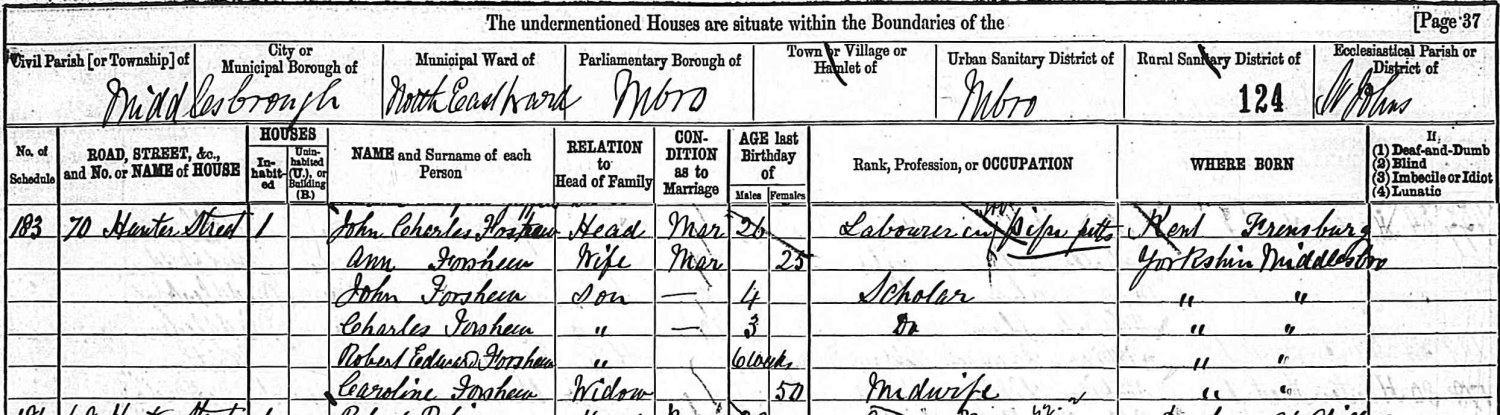 The undermentioned Houses are situate within the Boundaries of the [Page 37
Civil Parish [or Township] of City or Municipal Borough of Municipal Ward of Parliamentary Borough of Town or Village or Hamlet of Urban Sanitary District of Rural Sanitary District of Ecclesiastical Parish or District of
Middlesbrough North East Ward Mbro Mbro 124 St Johns
No. of Schedule ROAD, STREET, &c., and No. or NAME of HOUSE HOUSES In-habit-ed Unin-habited (U.), or Building (B.) NAME and Surname of each Person RELATION to Head of Family CON-DITION as to Marriage AGE last Birthday of Males Females Rank, Profession, or OCCUPATION WHERE BORN If (1) Deaf-and-Dumb (2) Blind (3) Imbecile or Idiot (4) Lunatic
183 70 Hunter Street 1 John Charles Head Mar 26 Labourer in pipe Kent
Ann Forshew Wife Mar 25 Yorkshire Middlesbro
John Forshew Son — 4 Scholar " "
Charles Forshew " — 3 Do " "
Robert Edward Forshew " 6 weeks " "
Caroline Forshew Widow 50 Midwife " "
Hunter Street 1 Robert